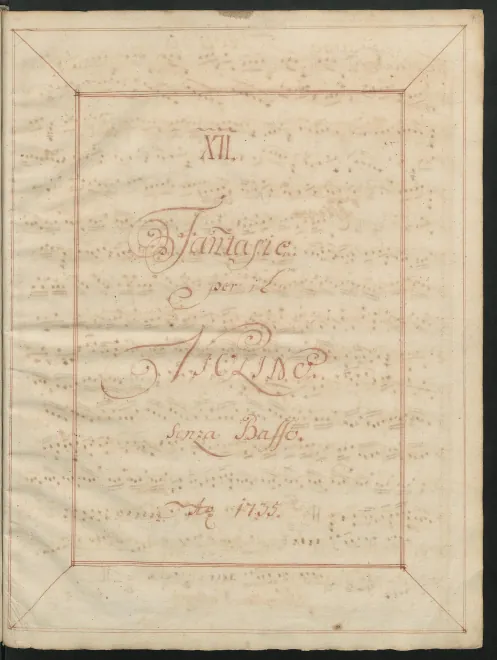 XII.
Fantasie
per il
VIOLINO.
Senza Basso.
Aō 1735.